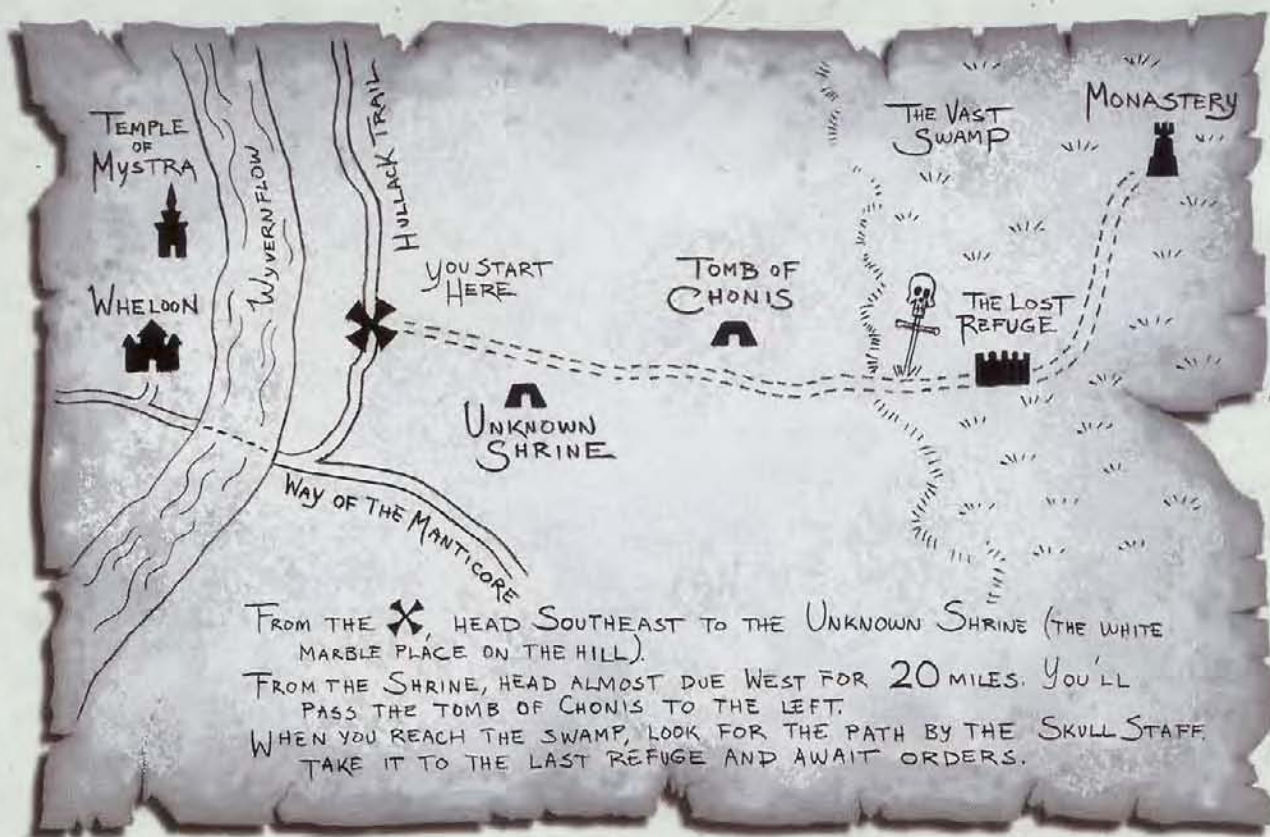 TEMPLE
OF
MYSTRA
WHELOON
WYVERNFLOW
HULLACK TRAIL
YOU START
HERE
UNKNOWN
SHRINE
WAY OF THE MANTICORE
TOMB OF
CHONIS
THE VAST
SWAMP
THE LOST
REFUGE
MONASTERY
FROM THE , HEAD SOUTHEAST TO THE UNKNOWN SHRINE (THE WHITE
MARBLE PLACE ON THE HILL).
FROM THE SHRINE, HEAD ALMOST DUE WEST FOR 20 MILES. YOU'LL
PASS THE TOMB OF CHONIS TO THE LEFT.
WHEN YOU REACH THE SWAMP, LOOK FOR THE PATH BY THE SKULL STAFF.
TAKE IT TO THE LAST REFUGE AND AWAIT ORDERS.